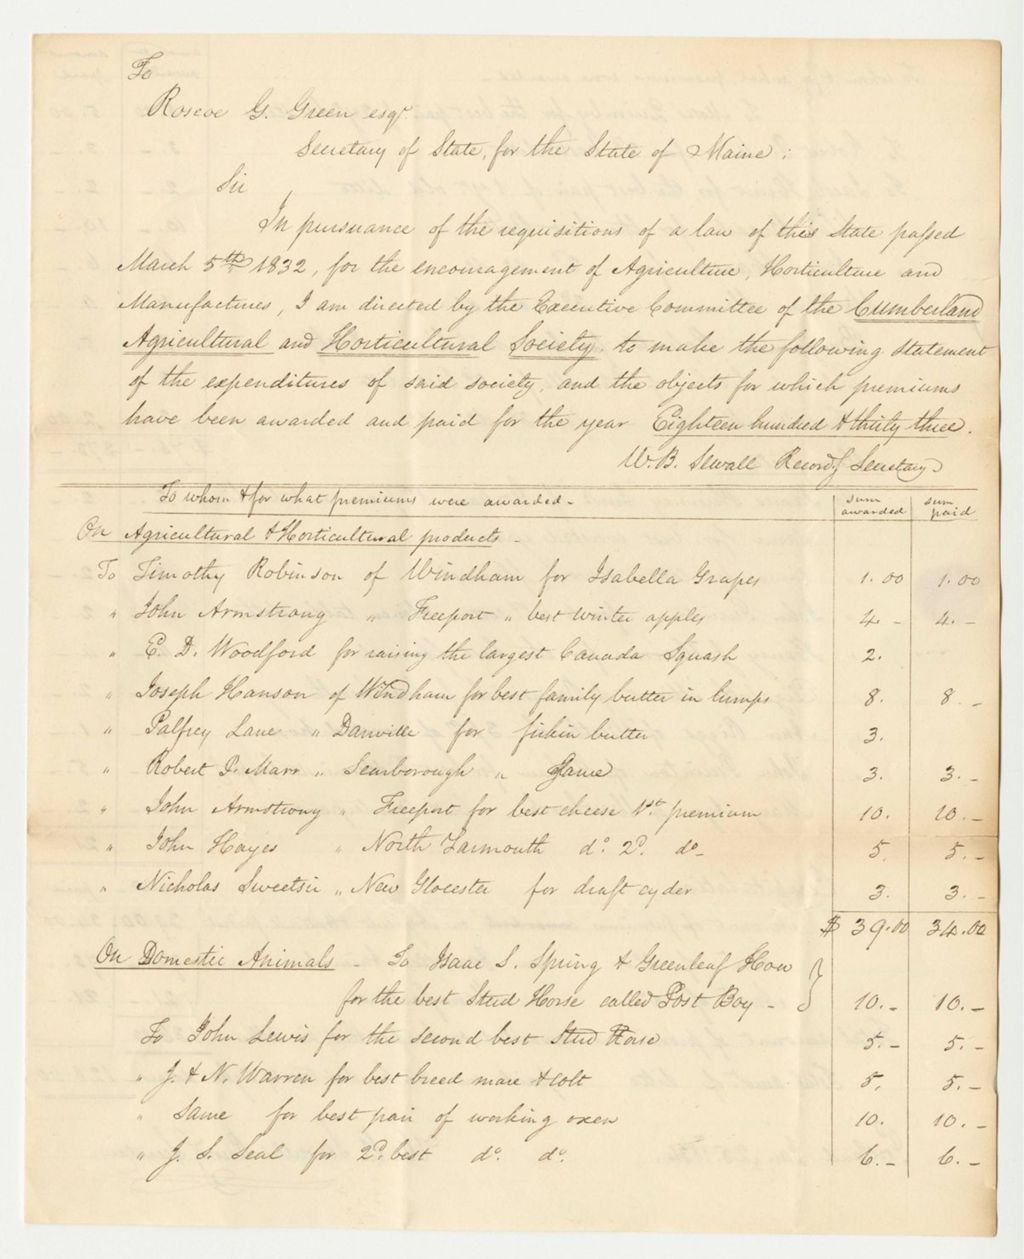 To
Roscoe G. Green esqr.
Secretary of State, for the State of Maine;
Sir
In pursuance of the requisitions of a law of this State passed
March 5th 1832, for the encouragement of Agriculture, Horticulture and
Manufactures, I am directed by the Executive Committee of the Cumberland
Agricultural and Horticultural Society to make the following statement
of the expenditures of said society, and the objects for which premiums
have been awarded and paid for the year Eighteen hundred & thirty three.
W. B. Sewall Recordg Secretary
To whom & for what premiums were awarded - sum awarded sum paid
On Agricultural & Horticultural products -
To Timothy Robinson of Windham for Isabella Grapes 1.00 1.00
" John Armstrong " Freeport " best winter apples 4. - 4. -
" E. D. Woodford for raising the largest Canada Squash 2.
" Joseph Hanson of Windham for best family butter in lumps 8. 8. -
" Palfrey Lane " Danville for firkin butter 3.
" Robert P. Marr " Scarborough " Same 3. 3. -
" John Armstrong " Freeport for best cheese 1st premium 10. 10. -
" John Hayes " North Yarmouth do. 2d. do - 5. 5. -
" Nicholas Sweetsir " New Glocester for draft cyder 3. 3. -
$ 39.00 34.00
On Domestic Animals - To Isaac S. Spring & Greenleaf How
for the best Stud Horse called Post Boy - 10. - 10. -
To John Lewis for the second best Stud Horse 5. - 5. -
" J. & N. Warren for best breed mare & colt 5. 5. -
" Same for best pair of working oxen 10. 10. -
" J. S. Seal for 2d. best do. do. 6. - 6. -